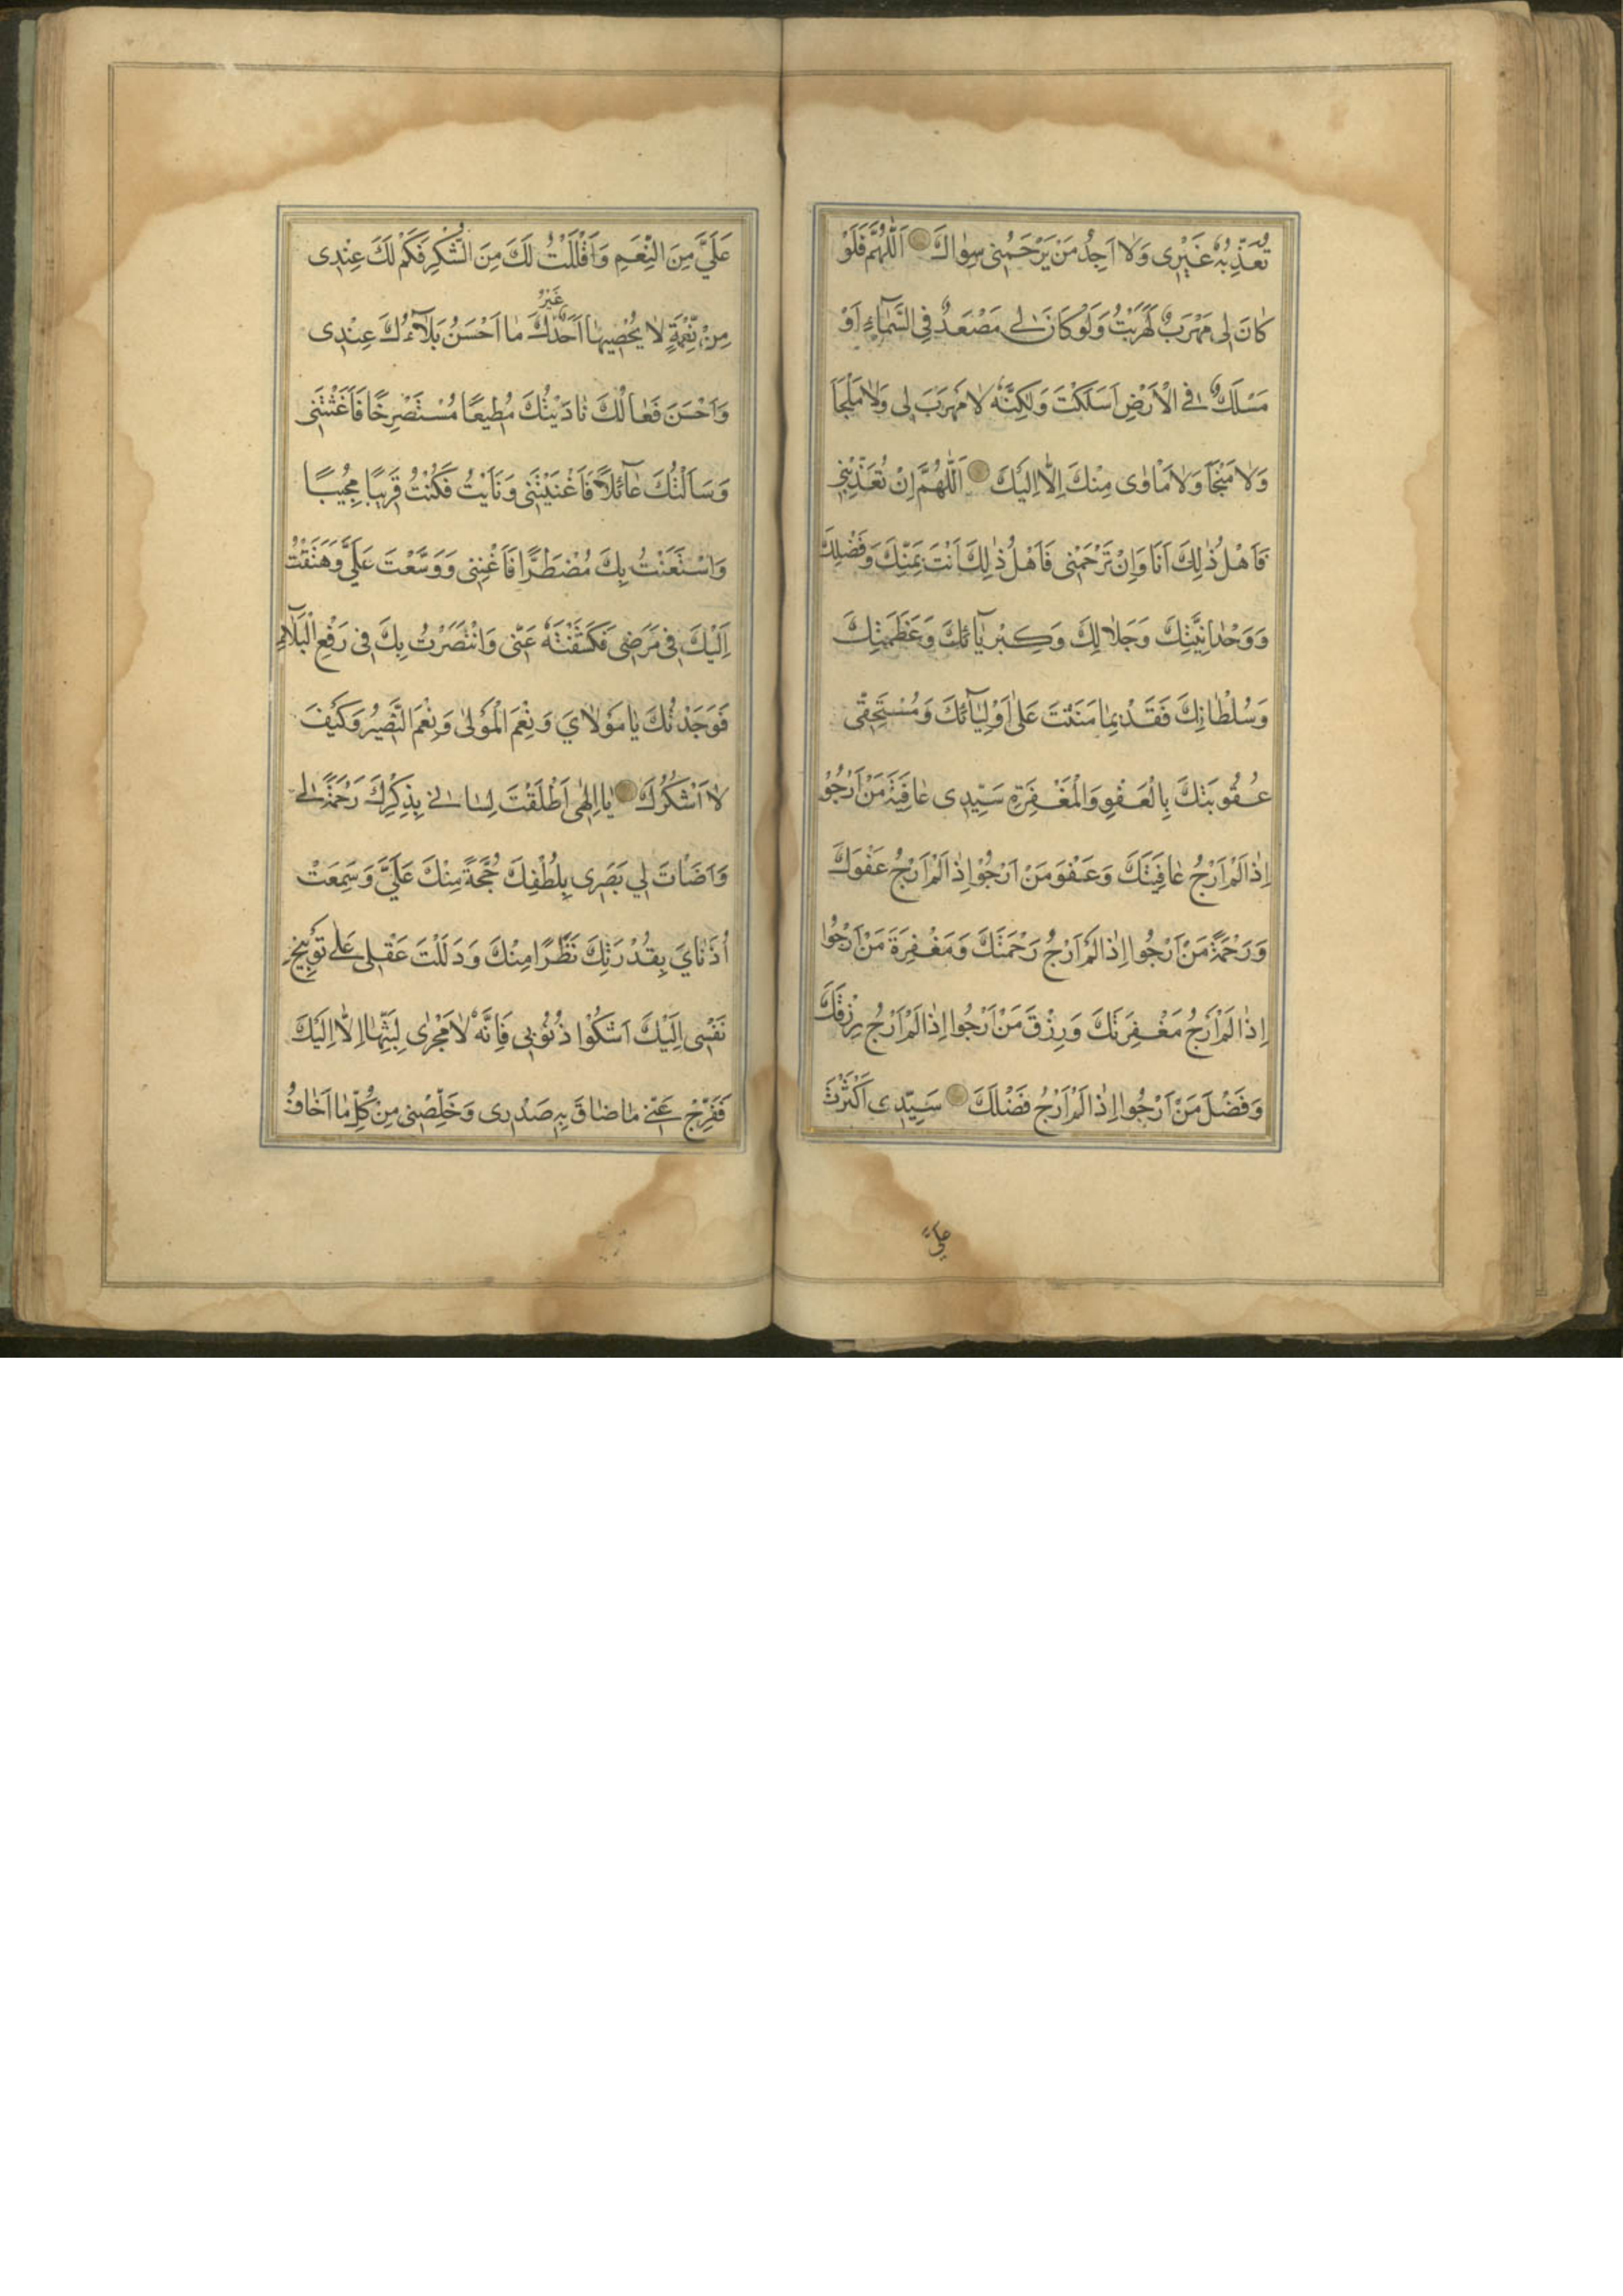 تُعَذِّبُهُ غَيْرِى وَلَا اَجِدُ مَنْ يَرْحَمُنِى سِوَاكَ اَللّٰهُمَّ فَلَوْ
كَانَ لِى مَهْرَبٌ لَهَرَبْتُ وَلَوْ كَانَ لِى مَصْعَدٌ فِى السَّمَآءِ اَوْ
مَسْلَكٌ فِى الْاَرْضِ اَسَلَكْتَ وَلٰكِنَّهُ لَا مَهْرَبَ لِى وَلَا مَلْجَأَ
وَلَا مَنْجَاَ وَلَا مَاْوٰى مِنْكَ اِلَّا اِلَيْكَ اَللّٰهُمَّ اِنْ تُعَذِّبْنِى
فَاَهْلُ ذٰلِكَ اَنَا وَاِنْ تَرْحَمْنِى فَاَهْلُ ذٰلِكَ اَنْتَ بِمَنِّكَ وَفَضْلِكَ
وَوَحْدَانِيَّتِكَ وَجَلَالِكَ وَكِبْرِيَآئِكَ وَعَظَمَتِكَ
وَسُلْطَانِكَ فَقَدْيمًا مَنَنْتَ عَلٰى اَوْلِيَآئِكَ وَمُسْتَحِقِّى
عُقُوبَتِكَ بِالْعَفْوِ وَالْمَغْفِرَةِ سَيِّدِى عَافِيَةَ مَنْ اَرْجُوْ
اِذَا لَمْ اَرْجُ عَافِيَتَكَ وَعَفْوَ مَنْ اَرْجُوْ اِذَا لَمْ اَرْجُ عَفْوَكَ
وَرَحْمَةَ مَنْ اَرْجُوا اِذَا لَمْ اَرْجُ رَحْمَتَكَ وَمَغْفِرَةَ مَنْ اَرْجُوا
اِذَا لَمْ اَرْجُ مَغْفِرَتَكَ وَرِزْقَ مَنْ اَرْجُوا اِذَا لَمْ اَرْجُ رِزْقَكَ
وَفَضْلَ مَنْ اَرْجُوا اِذَا لَمْ اَرْجُ فَضْلَكَ سَيِّدِى اَكْثَرْتَ
عَلَيَّ
عَلَيَّ مِنَ النِّعَمِ وَاَقْلَلْتُ لَكَ مِنَ الشُّكْرِ فَكَمْ لَكَ عِنْدِى
مِنْ نِعْمَةٍ لَا يُحْصِيهَا اَحَدٌ غَيْرُكَ مَا اَحْسَنُ بَلَآءُكَ عِنْدِى
وَاَحْسَنَ فَعَالُكَ نَادَيْتُكَ مُطِيعًا مُسْتَصْرِخًا فَاَغَثْتَنِى
وَسَاَلْتُكَ عَآئِلًا فَاَغْنَيْتَنِى وَنَاَيْتُ فَكُنْتَ قَرِيبًا مُجِيبًا
وَاسْتَعَنْتُ بِكَ مُضْطَرًّا فَاَغْنِنِى وَوَسَّعْتَ عَلَيَّ وَهَتَفْتُ
اِلَيْكَ فِى مَرَضِى فَكَشَفْتَهُ عَنِّى وَانْتَصَرْتُ بِكَ فِى رَفْعِ الْبَلَآءِ
فَوَجَدْتُكَ يَا مَوْلَايَ وَنِعْمَ الْمَوْلٰى وَنِعْمَ النَّصِيْرُ وَكَيْفَ
لَا اَشْكُرُكَ يَا اِلٰهِى اَطْلَقْتَ لِسَانِى بِذِكْرِكَ رَحْمَةً لِى
وَاَضَاْتَ لِي بَصَرِى بِلُطْفِكَ حُجَّةً مِنْكَ عَلَيَّ وَسَمِعَتْ
اُذَنَايَ بِقُدْرَتِكَ نَظَرًا مِنْكَ وَدَلَلْتَ عَقْلِى عَلٰى تَوْبِيخِ
نَفْسِى اِلَيْكَ اَشْكُوْا ذُنُوْبِى فَاِنَّهُ لَا مَجْرٰى لِبَثِّهَا اِلَّا اِلَيْكَ
فَفَرِّجْ عَنِّى مَا ضَاقَ بِهِ صَدْرِى وَخَلِّصْنِى مِنْ كُلِّ مَا اَخَافُ